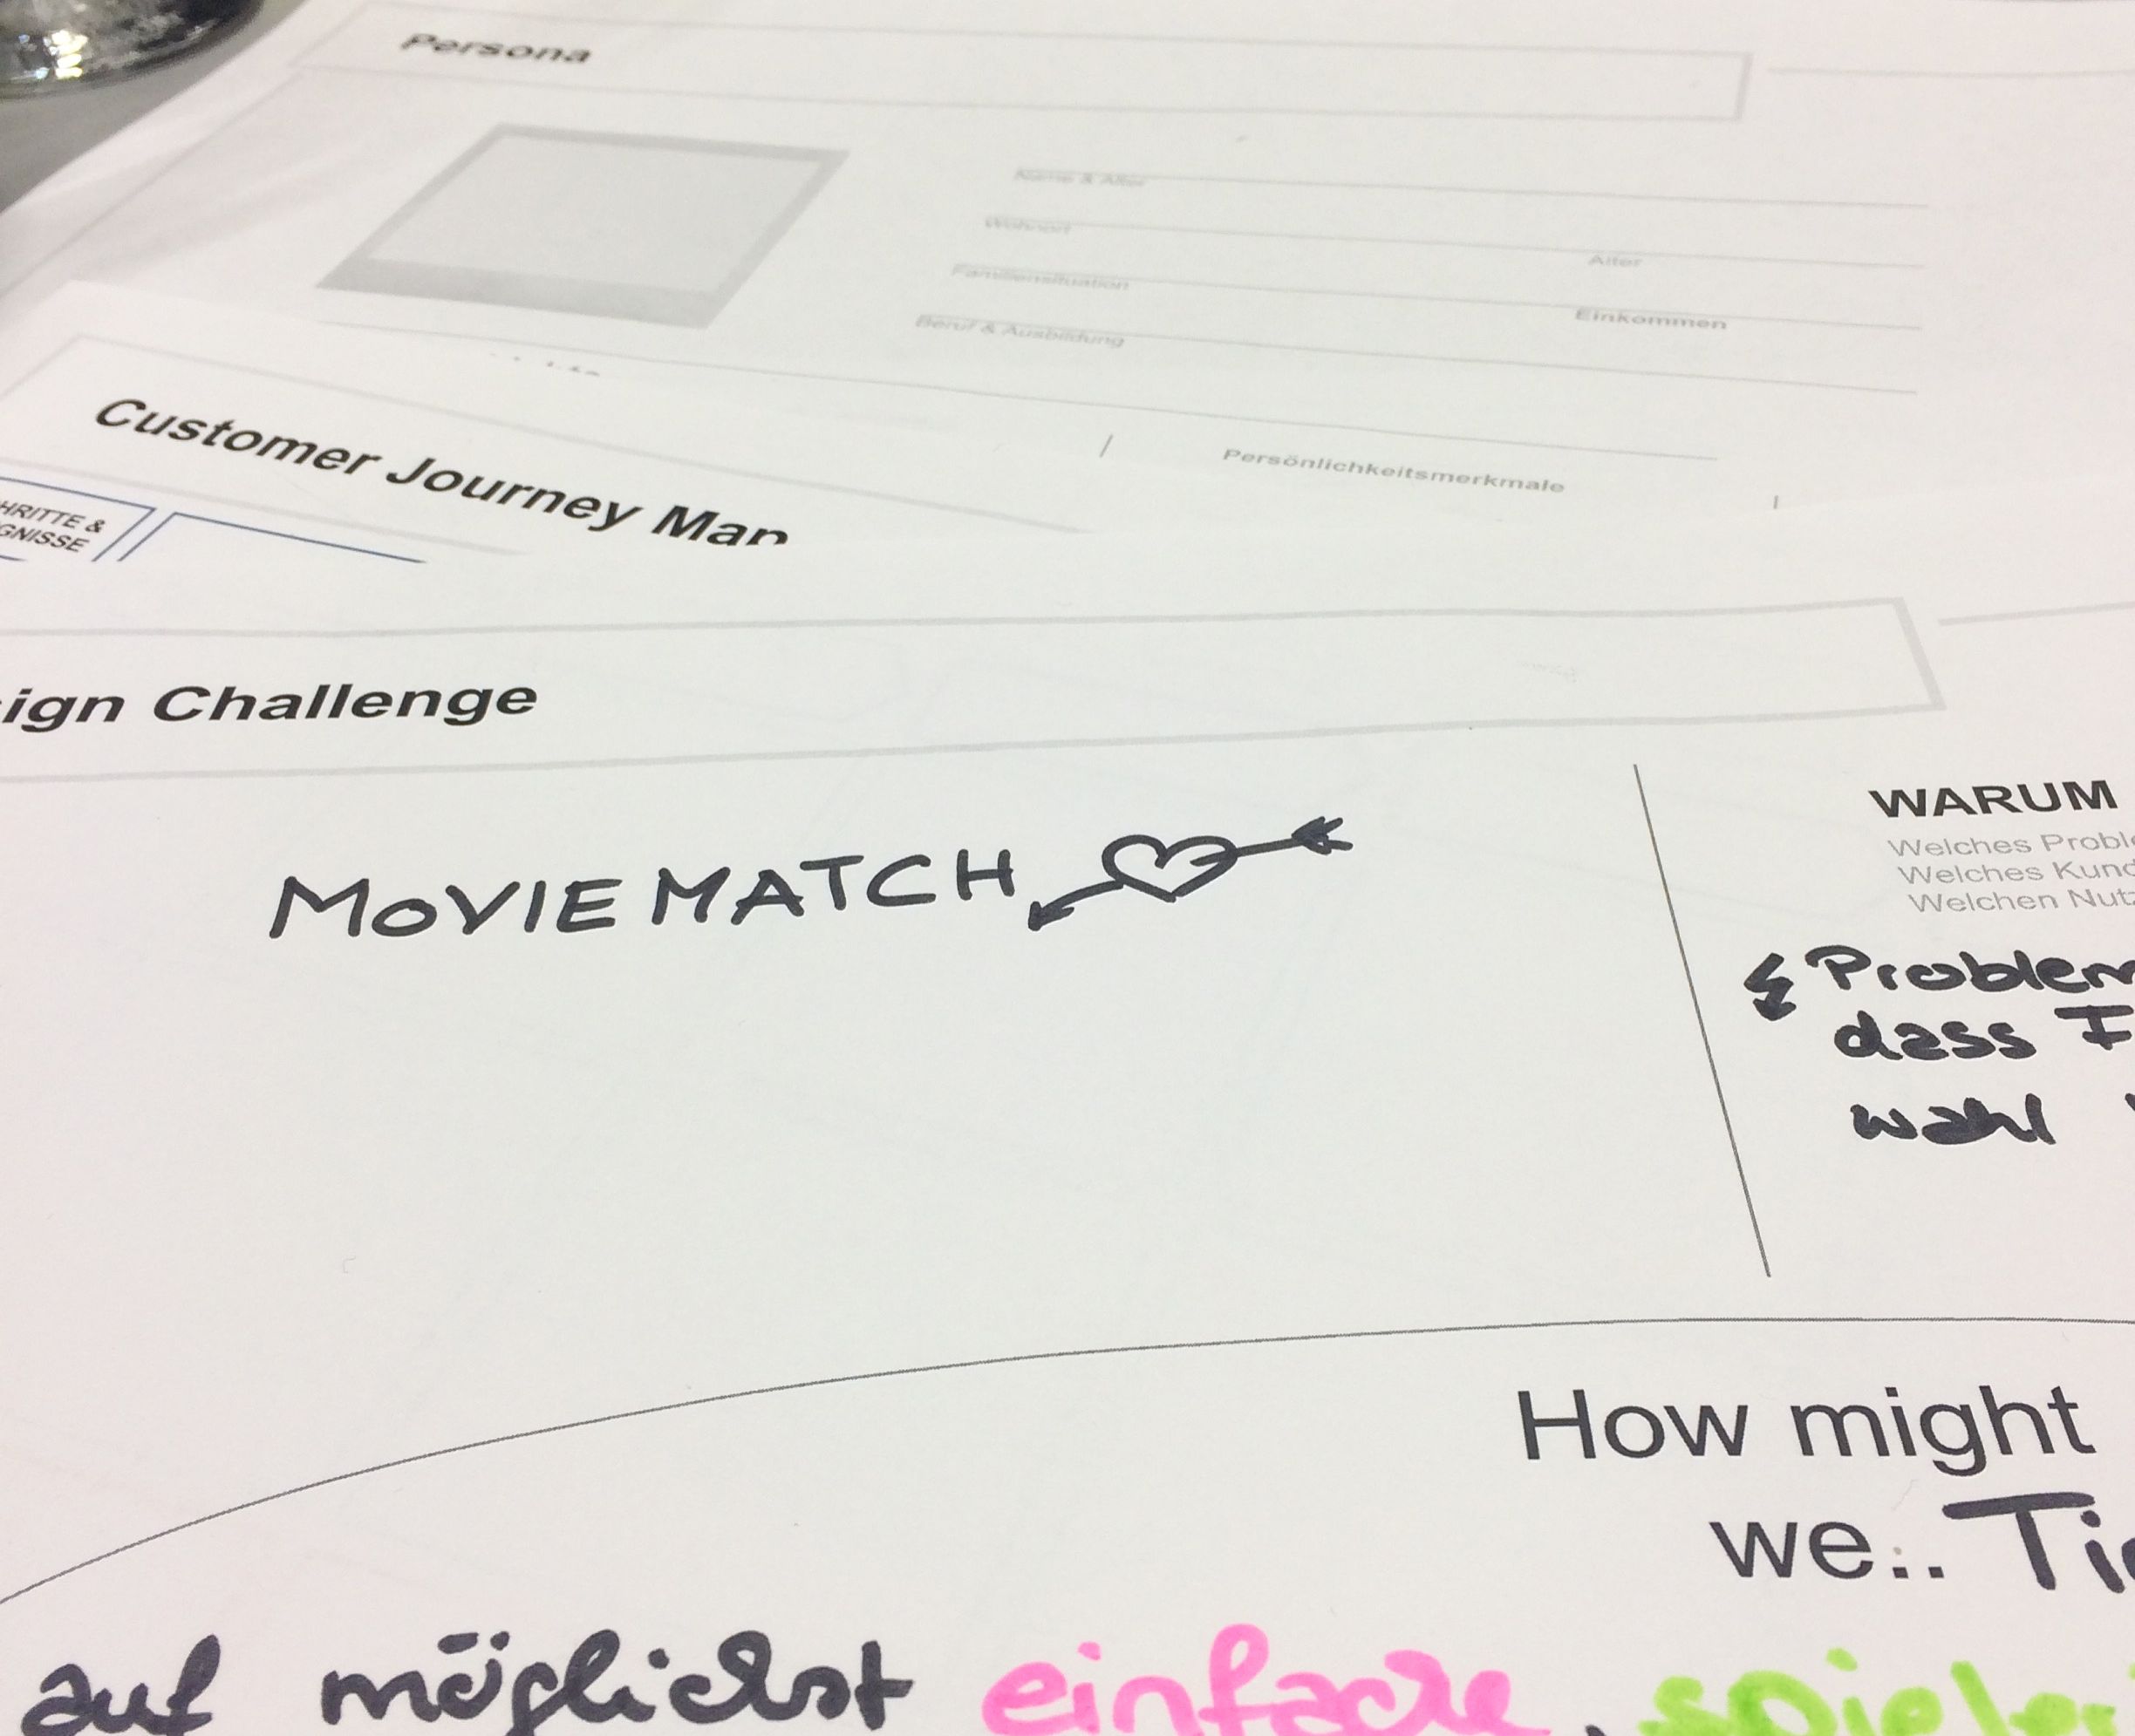 Persona
Name & Alter
Wohnort
Alter
Familiensituation
Einkommen
Beruf & Ausbildung
Persönlichkeitsmerkmale
Customer Journey Map
HRITTE &
GNISSE
ign Challenge
MOVIE MATCH
WARUM
Welches Proble
Welches Kund
Welchen Nutz
Problem
dass F
wahl
How might
we... Ti
auf möglichst einfache, spiele